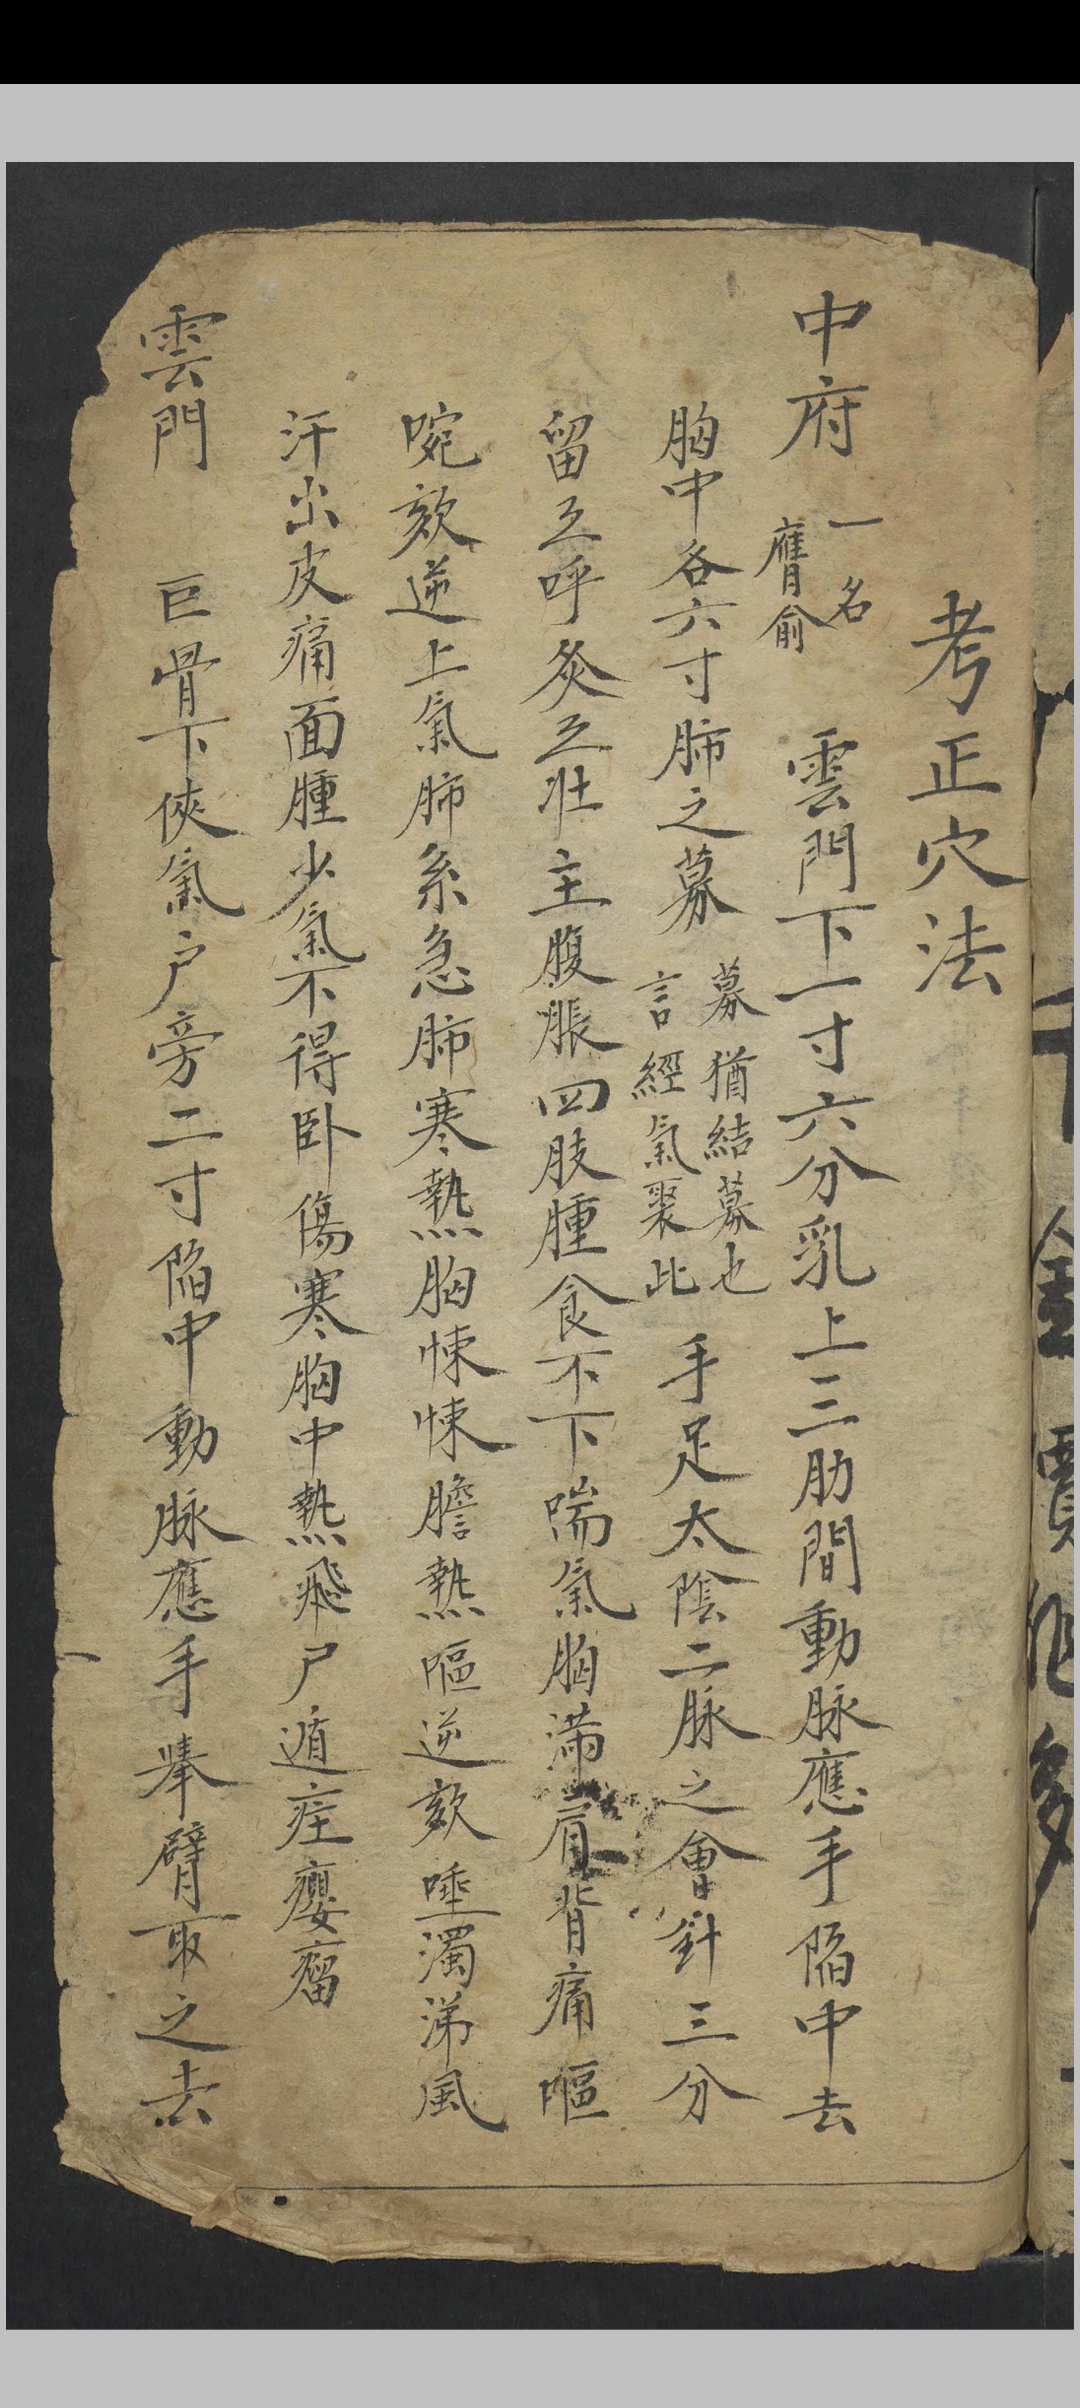 考正穴法
中府 一名膺俞 雲門下一寸六分乳上三肋間動脉應手陷中去
胸中各六寸肺之募 募猶結募也言經氣聚此 手足太陰二脉之會針三分
留五呼灸五壯主腹脹四肢腫食不下喘氣胸滿肩背痛嘔
啘欬逆上氣肺系急肺寒熱胸悚悚膽熱嘔逆欬唾濁涕風
汗出皮痛面腫少氣不得卧傷寒胸中熱飛尸遁疰癭瘤
雲門 巨骨下俠氣户旁二寸陷中動脉應手擧臂取之去